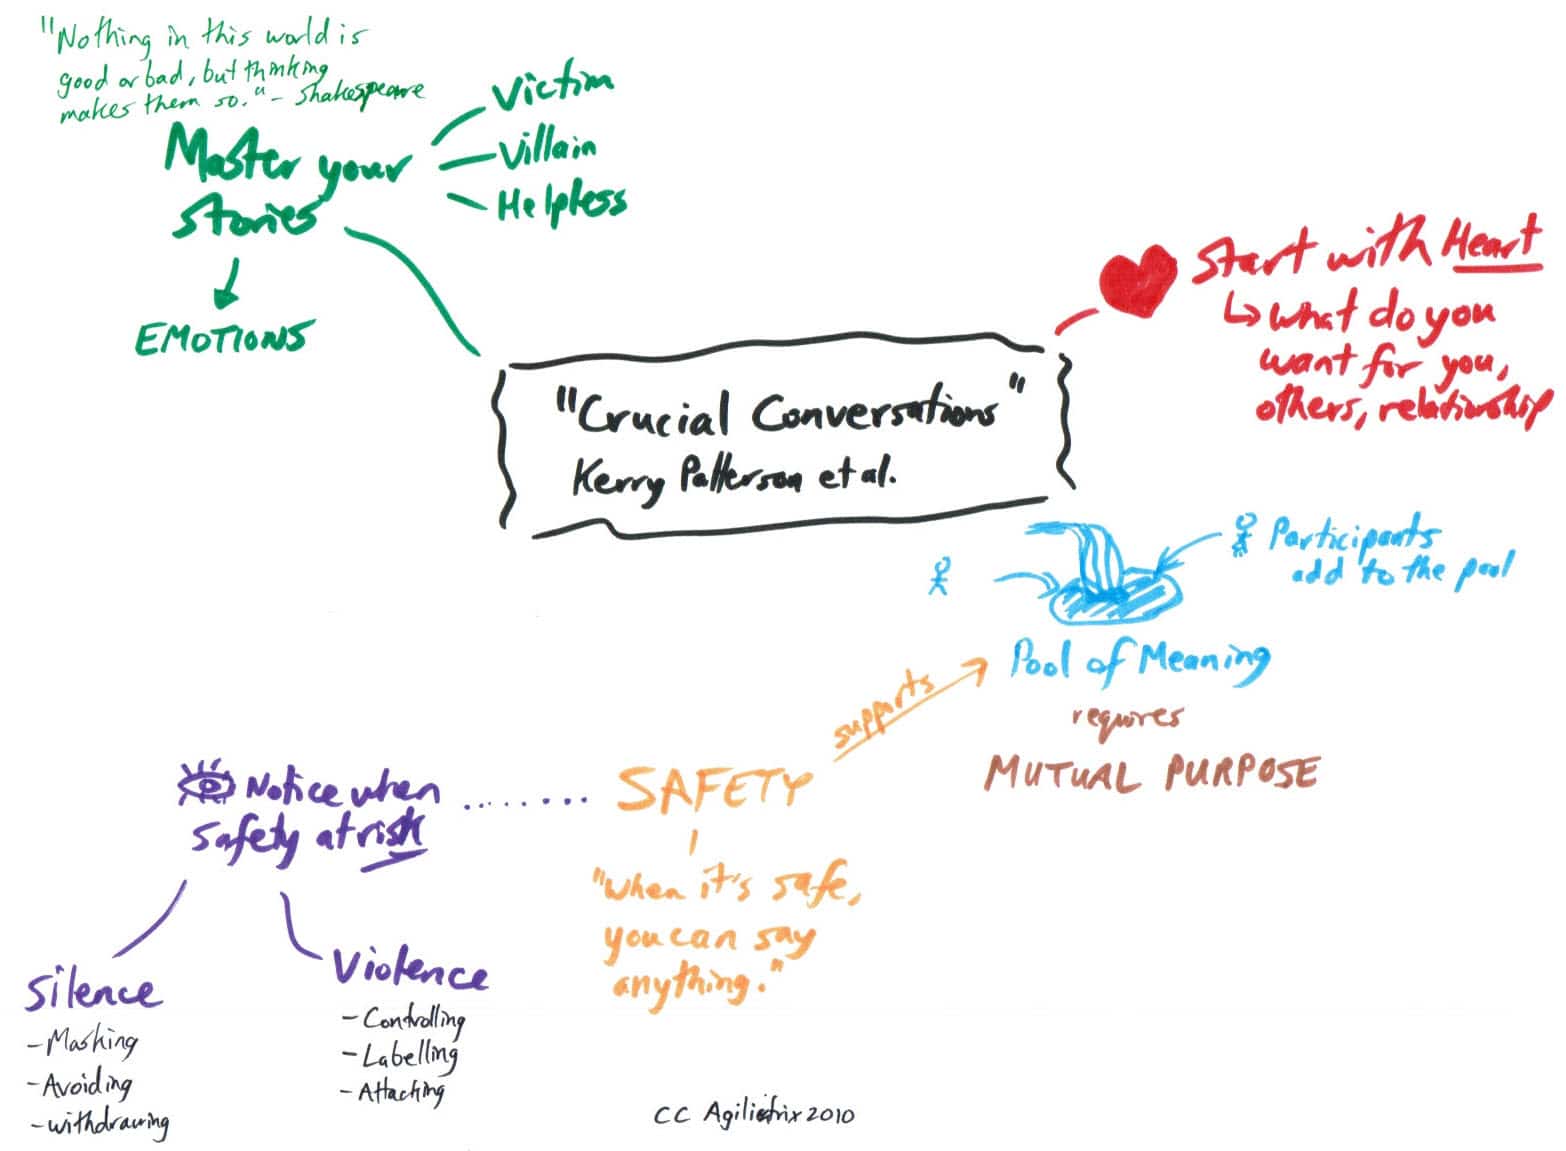 "Nothing in this world is
good or bad, but thinking
makes them so." - Shakespeare
Master your
stories
Victim
Villain
Helpless
EMOTIONS
Start with Heart
↳ what do you
want for you,
others, relationship
"Crucial Conversations"
Kerry Patterson et al.
Participants
add to the pool
Pool of Meaning
requires
MUTUAL PURPOSE
supports
SAFETY
"When it's safe,
you can say
anything."
Notice when
safety at risk
Silence
- Masking
- Avoiding
- withdrawing
Violence
- Controlling
- Labelling
- Attacking
CC Agilistrix 2010